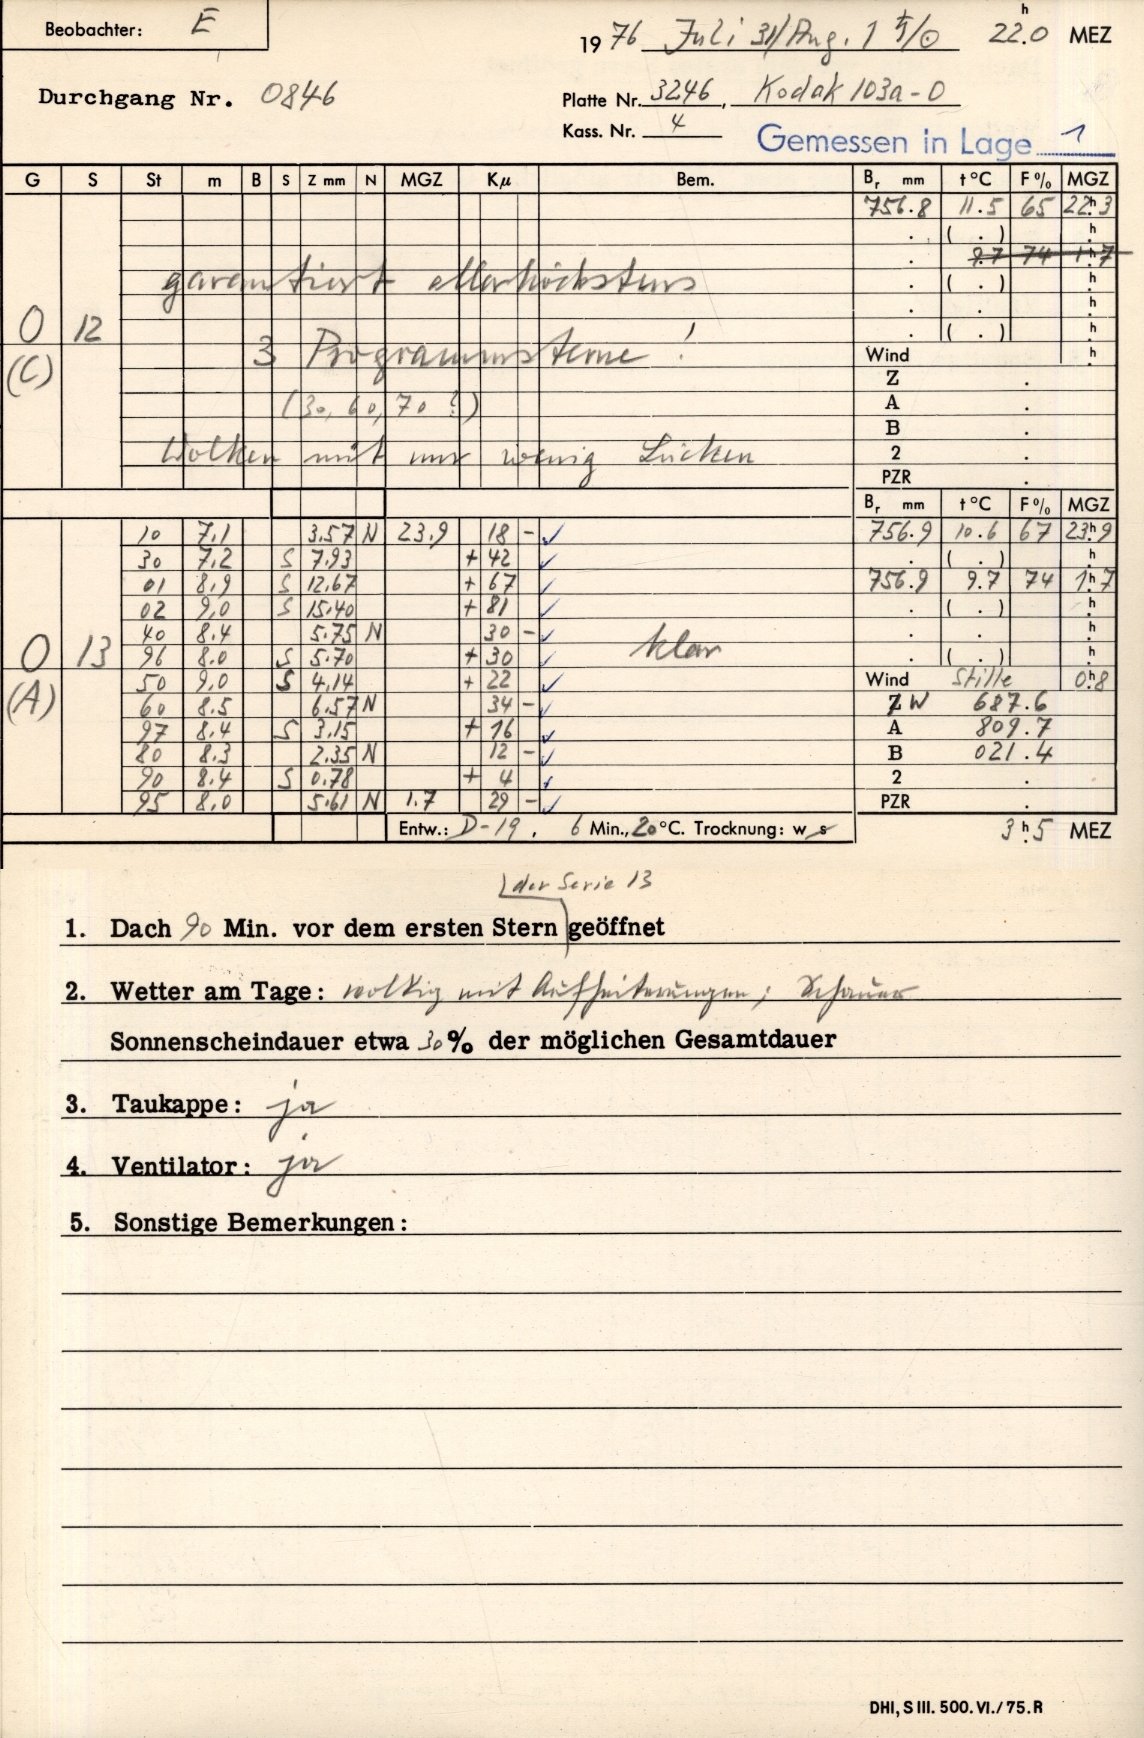 Beobachter: E
1976 Juli 31/Aug. 1 ♄/☉ 22h.0 MEZ
Durchgang Nr. 0846
Platte Nr. 3246, Kodak 103a-O
Kass. Nr. 4
Gemessen in Lage 1
G S St m B S Z mm N MGZ Kμ Bem. Br mm t°C F% MGZ
756.8 11.5 65 22h.3
. ( . ) h
. 9.7 74 1h.7
garantiert allerhöchstens . ( . ) h
. . h
O 12 . ( . ) h
(C) 3 Programmsterne ! Wind h
Z .
(30, 60, 70 ?) A .
B .
Wolken mit nur wenig Lücken 2 .
PZR .
Br mm t°C F% MGZ
10 7.1 3.57 N 23.9 18 - ✓ 756.9 10.6 67 23h.9
30 7.2 S 7.93 + 42 ✓ . ( . ) h
01 8.9 S 12.67 + 67 ✓ 756.9 9.7 74 1h.7
02 9.0 S 15.40 + 81 ✓ . ( . ) h
40 8.4 5.75 N 30 - ✓ . . h
O 13 96 8.0 S 5.70 + 30 ✓ klar . ( . ) h
(A) 50 9.0 S 4.14 + 22 ✓ Wind Stille 0h.8
60 8.5 6.57 N 34 - ✓ Z W 687.6
97 8.4 S 3.15 + 16 ✓ A 809.7
80 8.3 2.35 N 12 - ✓ B 021.4
90 8.4 S 0.78 + 4 ✓ 2 .
95 8.0 5.61 N 1.7 29 - ✓ PZR .
Entw.: D-19, 6 Min., 20°C. Trocknung: w s 3h.5 MEZ
der Serie 13
1. Dach 90 Min. vor dem ersten Stern geöffnet
2. Wetter am Tage: wolkig mit Aufheiterungen; Schauer
Sonnenscheindauer etwa 30% der möglichen Gesamtdauer
3. Taukappe: ja
4. Ventilator: ja
5. Sonstige Bemerkungen:
DHI, S III. 500. VI./75. R